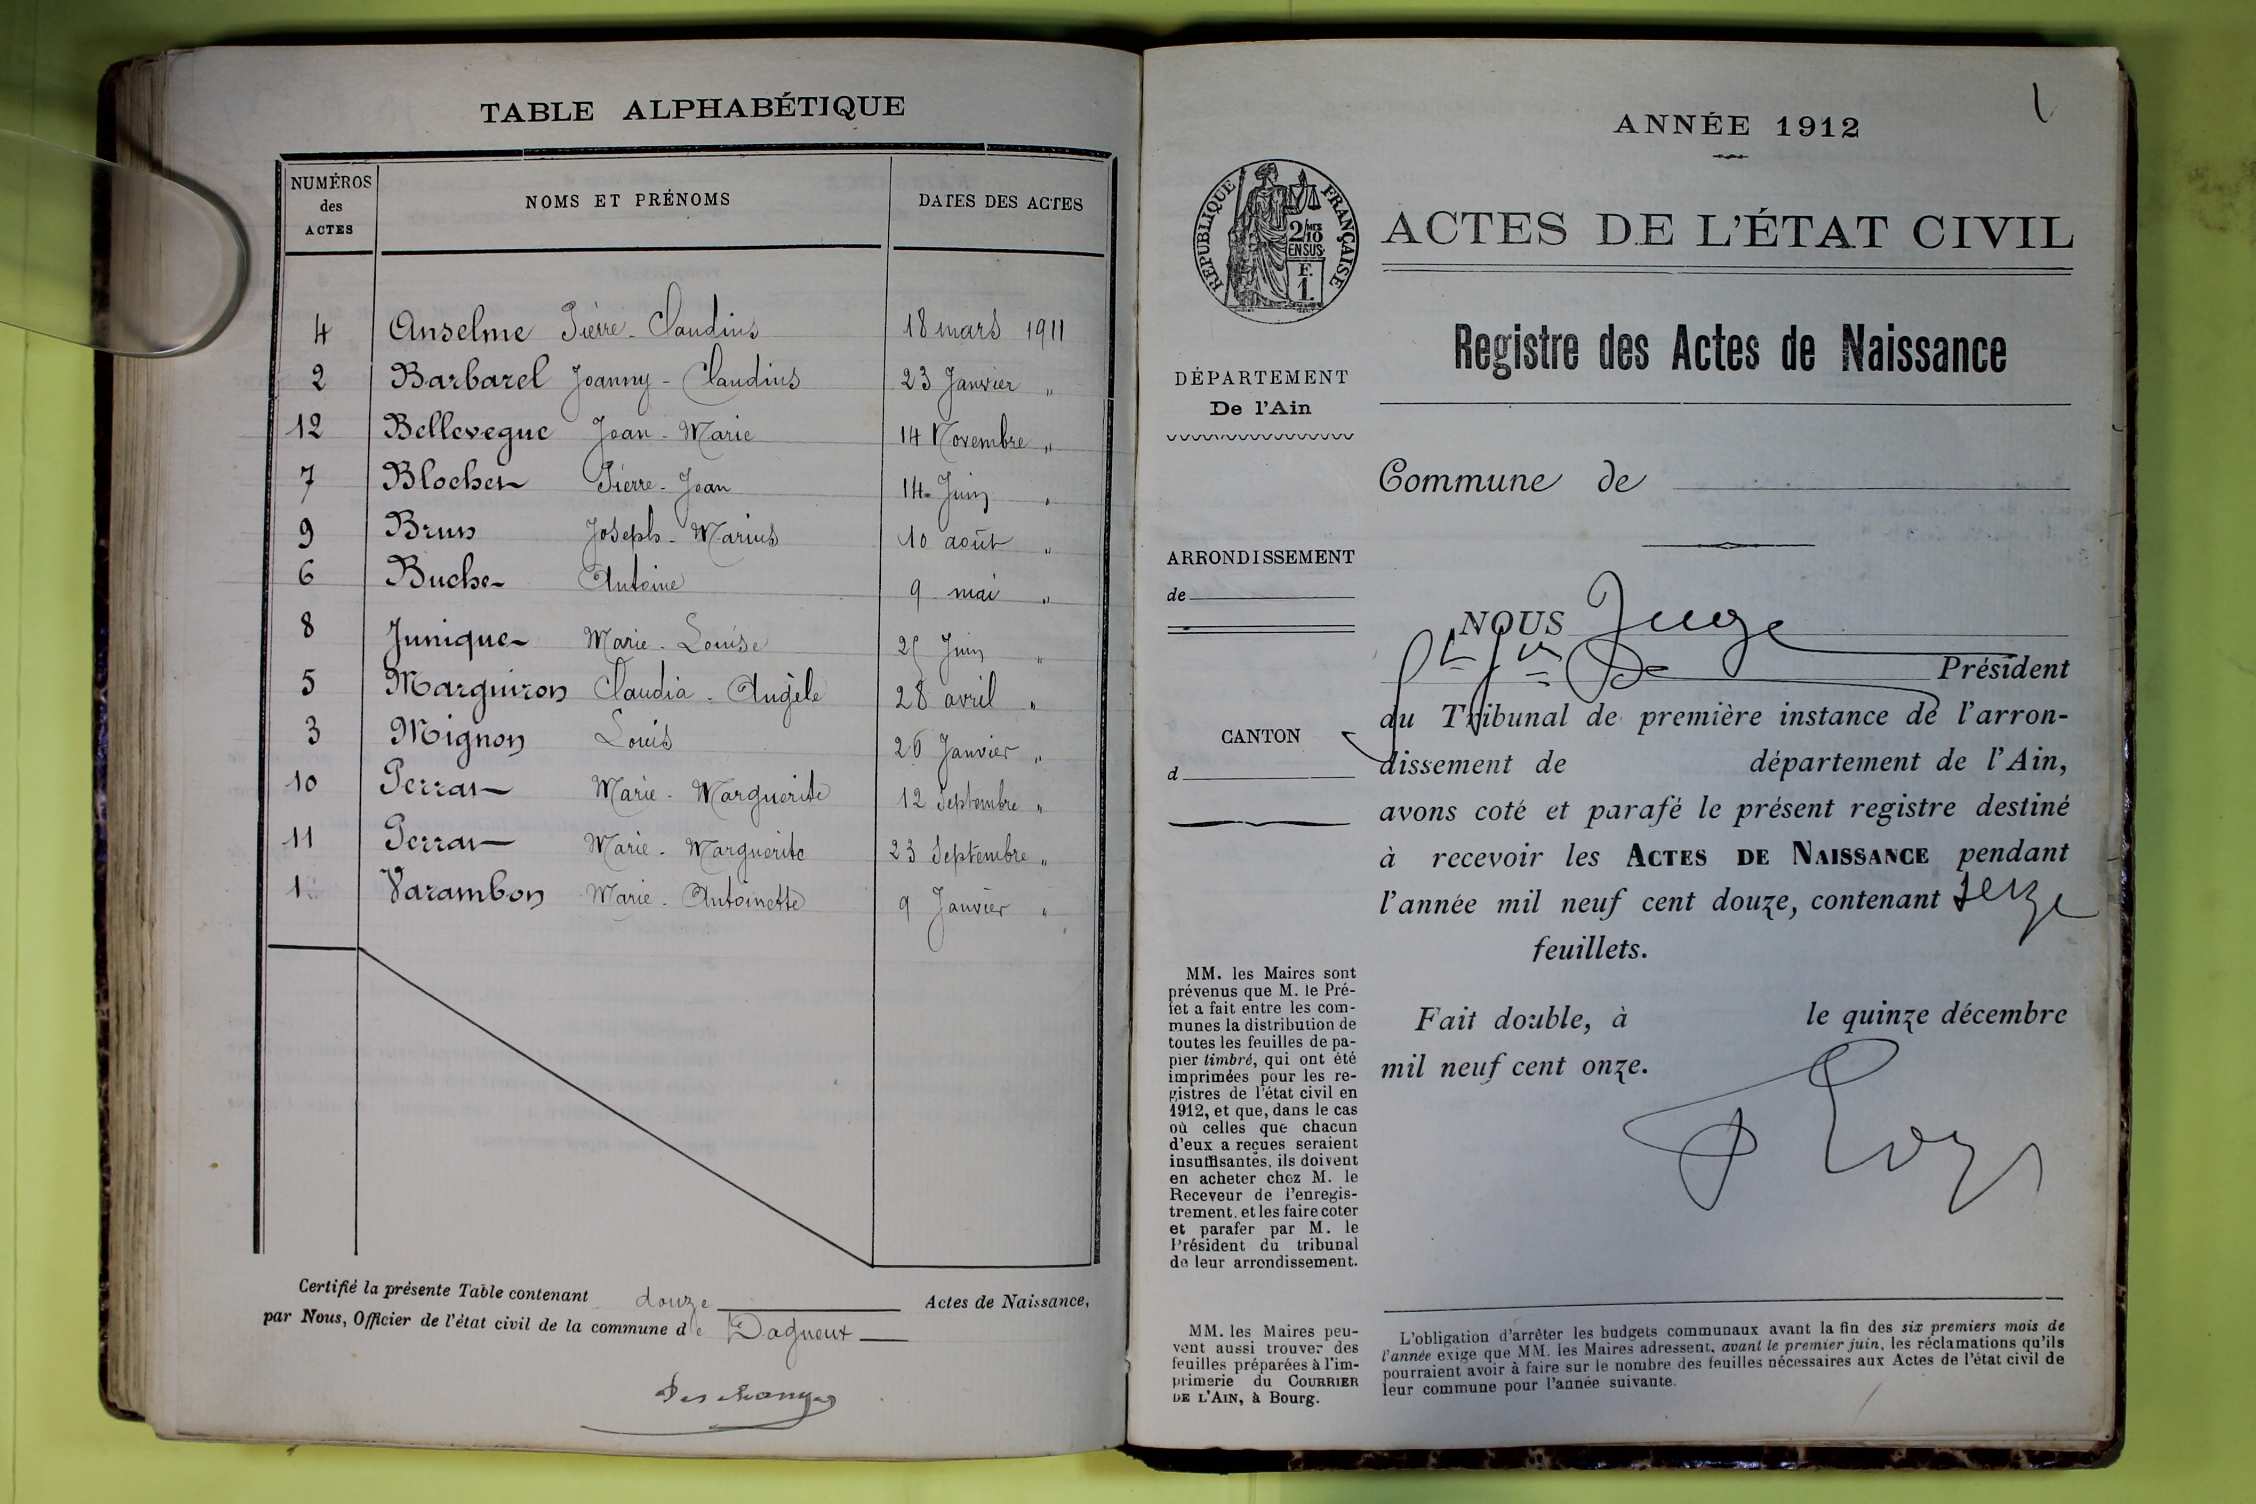 TABLE ALPHABÉTIQUE
NUMÉROS
des
ACTES
NOMS ET PRÉNOMS
DATES DES ACTES
4 Anselme Pierre-Claudius 18 mars 1911
2 Barbarel Joanny-Claudius 23 Janvier "
12 Bellevegue Jean-Marie 14 Novembre "
7 Blocher Pierre-Jean 14 Juin "
9 Brun Joseph-Marius 10 août "
6 Buche Antoine 9 mai "
8 Junique Marie-Louise 25 Juin "
5 Marguiron Claudia-Angèle 28 avril "
3 Mignon Louis 26 Janvier "
10 Perrat Marie-Marguerite 12 Septembre "
11 Perrat Marie-Marguerite 23 Septembre "
1 Varambon Marie-Antoinette 9 Janvier "
Certifié la présente Table contenant douze Actes de Naissance,
par Nous, Officier de l'état civil de la commune de Dagneux
1
ANNÉE 1912
RÉPUBLIQUE FRANÇAISE
2/10 MES
EN SUS
F.
1.
ACTES DE L'ÉTAT CIVIL
Registre des Actes de Naissance
DÉPARTEMENT
De l'Ain
Commune de
ARRONDISSEMENT
de
CANTON
d
NOUS Juge
Président
du Tribunal de première instance de l'arron-
dissement de département de l'Ain,
avons coté et parafé le présent registre destiné
à recevoir les ACTES DE NAISSANCE pendant
l'année mil neuf cent douze, contenant seize
feuillets.
Fait double, à le quinze décembre
mil neuf cent onze.
MM. les Maires sont
prévenus que M. le Pré-
fet a fait entre les com-
munes la distribution de
toutes les feuilles de pa-
pier timbré, qui ont été
imprimées pour les re-
gistres de l'état civil en
1912, et que, dans le cas
où celles que chacun
d'eux a reçues seraient
insuffisantes, ils doivent
en acheter chez M. le
Receveur de l'enregis-
trement, et les faire coter
et parafer par M. le
Président du tribunal
de leur arrondissement.
MM. les Maires peu-
vent aussi trouver des
feuilles préparées à l'im-
primerie du COURRIER
DE L'AIN, à Bourg.
L'obligation d'arrêter les budgets communaux avant la fin des six premiers mois de
l'année exige que MM. les Maires adressent, avant le premier juin, les réclamations qu'ils
pourraient avoir à faire sur le nombre des feuilles nécessaires aux Actes de l'état civil de
leur commune pour l'année suivante.